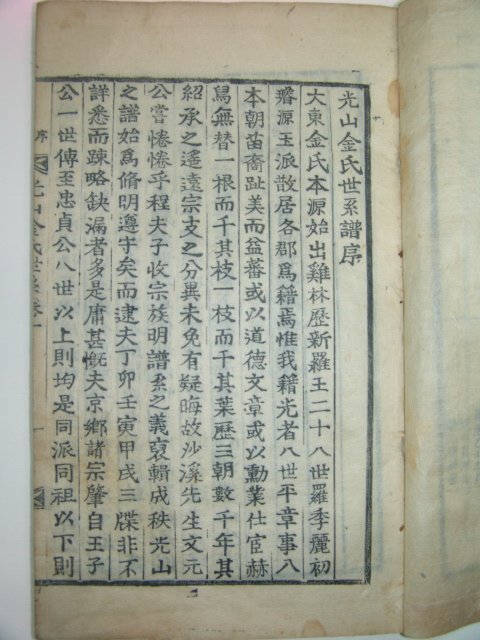 光山金氏世系譜序
大東金氏本源始出雞林歷新羅王二十八世羅季麗初
璿源玉派散居各郡爲籍焉惟我籍光者八世平章事八
本朝苗裔趾美而益蕃或以道德文章或以勳業仕宦赫
舃無替一根而千其枝一枝而千其葉歷三朝數千年其
紹承之遙遠宗支之分異未免有疑晦故沙溪先生文元
公嘗惓惓乎程夫子收宗族明譜系之義裒輯成秩光山
之譜始爲脩明遵守矣而逮夫丁卯壬寅甲戌三牒非不
詳悉而疎略缺漏者多是庸甚慨夫京鄕諸宗肇自王子
公一世傳至忠貞公八世以上則均是同派同祖以下則
序
光山金氏世系卷一